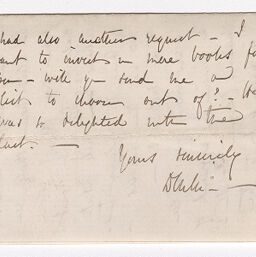 had also another request – I
want to invest in more books for
– will you send me a
list to choose out of? – He
was so delighted with the
last. –
Yours sincerely